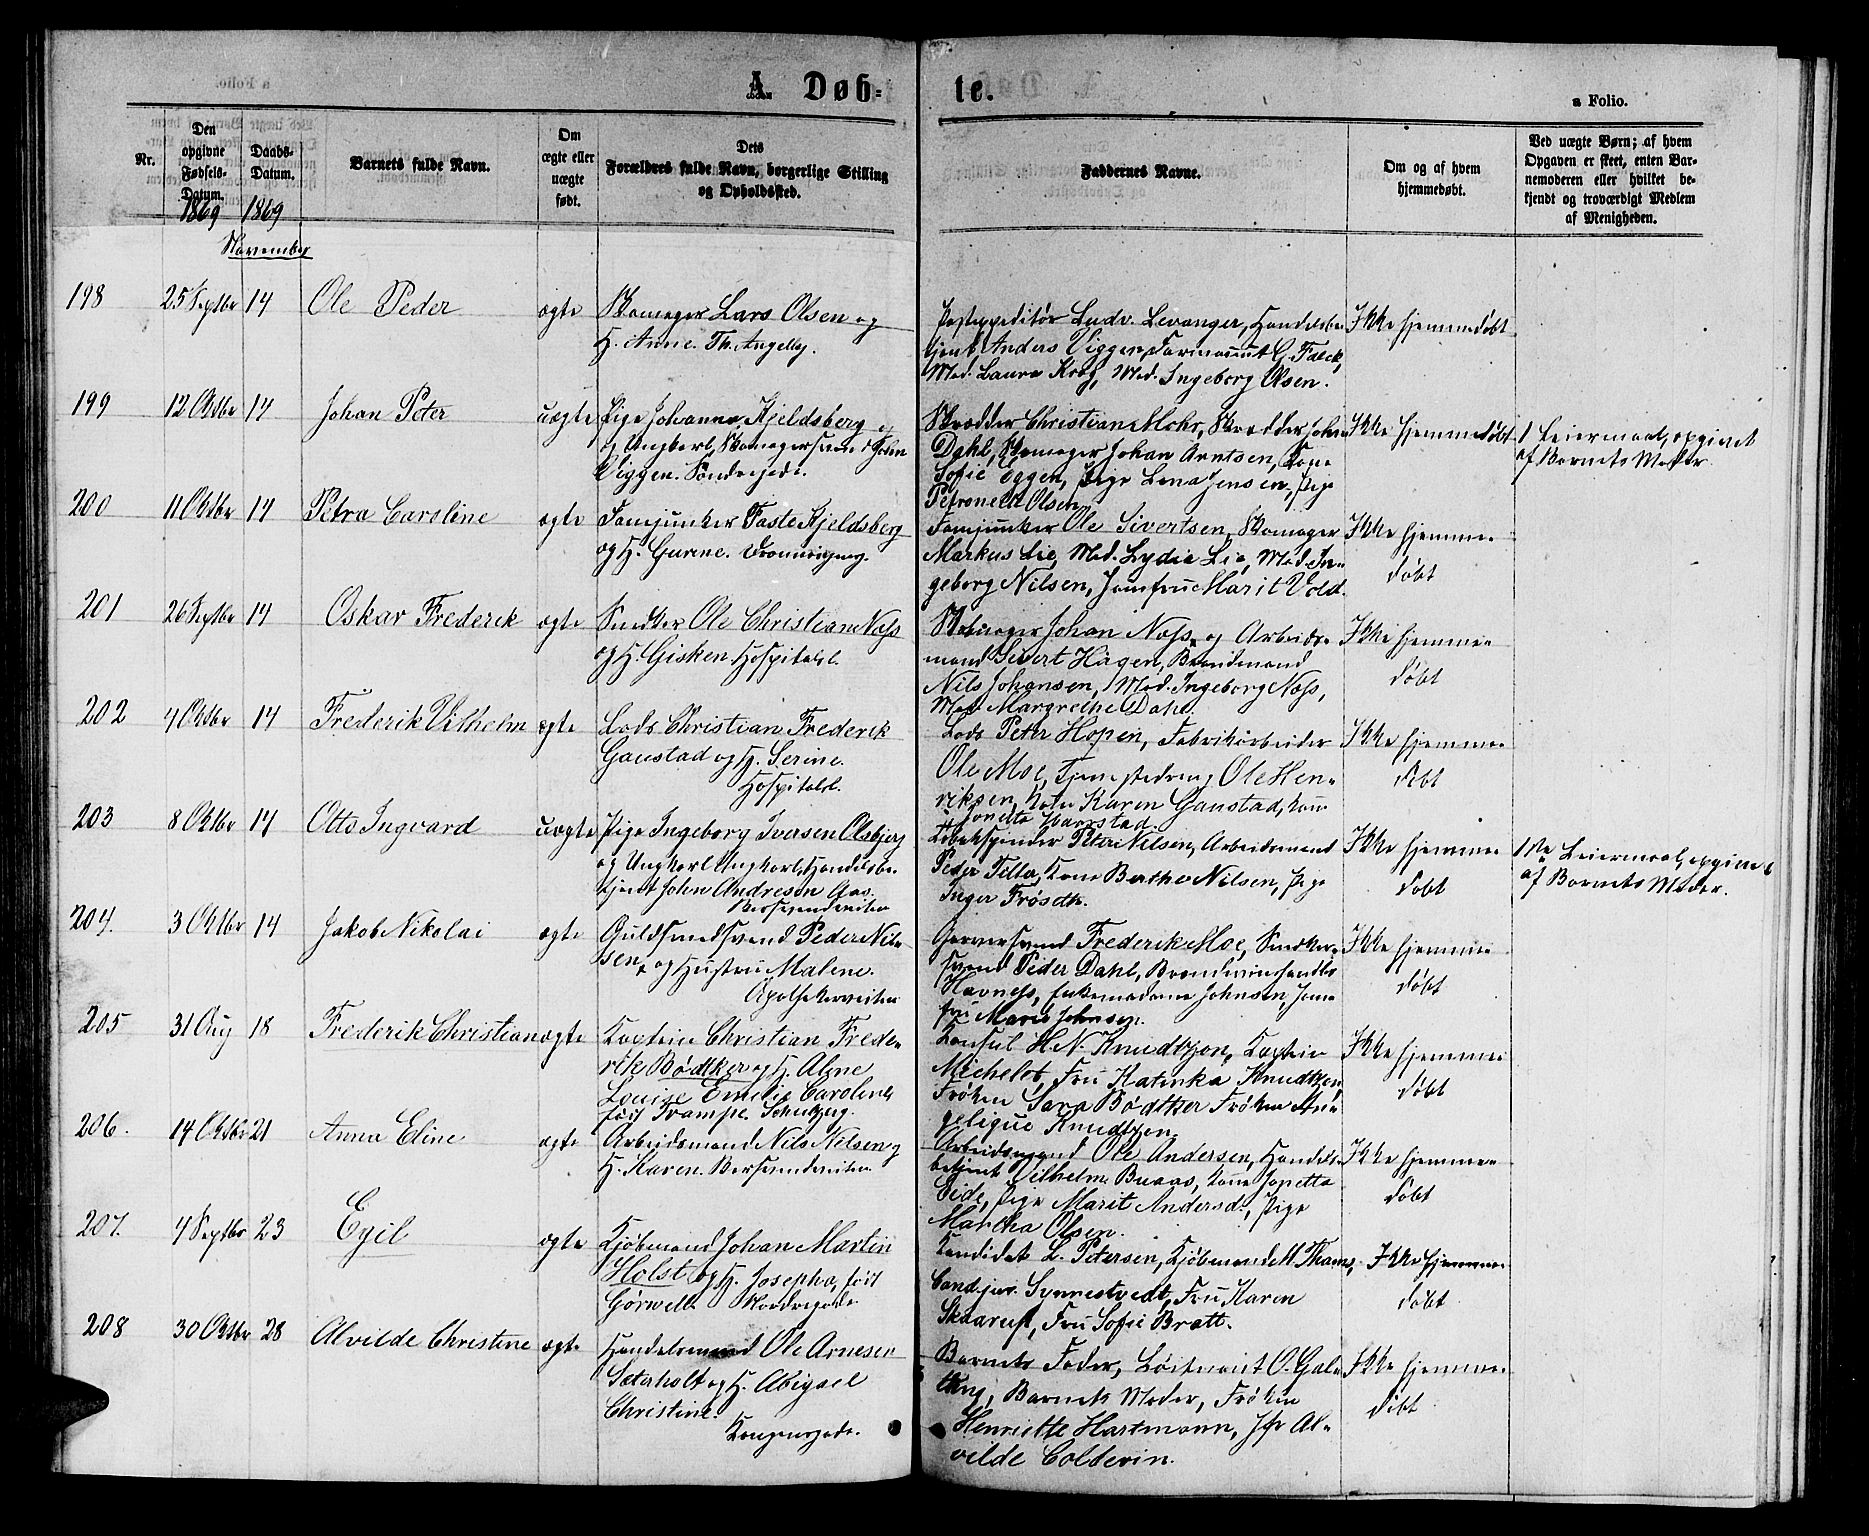 A. Døb-
te.
a Folio.
Nr.
Den opgivne Fødsels-Datum.
Daabs-Datum.
Barnets fulde Navn.
Om ægte eller uægte født.
Dets Forældres fulde Navn, borgerlige Stilling og Opholdssted.
Faddernes Navne.
Om og af hvem hjemmedøbt.
Ved uægte Børn; af hvem Opgaven er skeet, enten Barnemoderen eller hvilket bekjendt og troværdigt Medlem af Menigheden.
1869 1869
November
198 25 Septbr 14 Ole Peder ægte Skomager Lars Olsen og
H. Anne Th. Angelby.
Postexpeditør Ludv. Levanger, Handelsbe-
tjent Anders Viggen, Farmaceut G. Falck,
Mad. Laura Krog, Mad. Ingeborg Olsen.
Ikke hjemmedøbt
199 12 Oktbr 14 Johan Peter uægte Pige Johanna Kjeldsberg
og Ungkarl, Skomagersvend John
Viggen. Søndregade.
Skrædder Christian Mohr, Skrædder Johan
Dahl, Skomager Johan Arntsen, Kone
Sofie Eggen, Pige Lena Jensen, Pige
Petronella Olsen
Ikke hjemmedøbt
1 Leiermaal, opgivet
af Barnets Moder.
200 11 Oktbr 14 Petra Caroline ægte Kjeldsberg
og H. Gurine.
Ole Sivertsen, Skomager
Markus Lie, Mad. Lydia Lie, Mad. In-
geborg Nilsen, Jomfru Marit Vold.
Ikke hjemme-
døbt
201 26 Septbr 14 Oskar Frederik ægte Snedker Ole Christian Næss
og H. Gisken Hospitalsl.
Skomager Johan Næss og Arbeids-
mand Sivert Hagen, Brandmand
Nils Johansen, Mad. Ingeborg Næss,
Mad. Margrethe Dahl.
Ikke hjemme-
døbt
202 4 Oktbr 14 Frederik Vilhelm ægte Lods Christian Frederik
Ganstad og H. Serine.
Hospitalsl.
Lods Peter Hopen, Fabrikarbeider
Ole Moe, Tjenestedreng Ole Hen-
riksen, Kone Karen Ganstad, Kone
Jonetta
Ikke hjemme-
døbt
203 8 Oktbr 14 Otto Ingvard uægte Pige Ingeborg Iversen Olsbjerg
og Ungkarl Ungkarl, Handelsbe-
tjent John Andresen Aas.
Bersvendveiten
Tobakspinder Peter Nilsen, Arbeidsmand
Peder Tiller, Kone Berthe Nilsen, Pige
Inger Frøseth.
Ikke hjemme-
døbt
1ste Leiermaal, opgivet
af Barnets Moder.
204. 3 Oktbr 14 Jakob Nikolai ægte Guldsmedsvend Peder Nil-
sen, og Hustru Malene.
Apothekerveiten
Garversvend Frederik Moe, Snedker-
svend Peder Dahl, Brændeviinshandler
Havness, Enkemadame Johnsen, Jom-
fru Marie Johnsen.
Ikke hjemme-
døbt
205 31 Aug 18 Frederik Christian ægte Kaptein Christian Frede-
rik Bødtker og H. Aline
Louise Emelie Caroline
født Trampe.
Konsul H. N. Knudtzon, Kaptein
Michelet, Fru Katinka Knudtzon,
Frøken Sara Bødtker Frøken An-
gelique Knudtzon
Ikke hjemme-
døbt
206. 14 Oktbr 21 Anna Eline ægte Arbeidsmand Nils Nilsen og
H. Karen. Bersvendveiten
Arbeidsmand Ole Andersen, Handels-
betjent Vilhelm Buaas, Kone Jonetta
Eide, Pige Marit Andersd., Pige
Martha Olsen.
Ikke hjemme-
døbt
207. 4 Septbr 23 Egil ægte Kjøbmand Johan Martin
Holst og H. Josepha, født
Gørwell Nordregade
Kandidat L. Petersen, Kjøbmand M. Thams,
Cand. jur. Synnestvedt, Fru Karen
Skaarup, Fru Sofie Bratt.
Ikke hjemme-
døbt
208 30 Oktbr 28 Alvilde Christine ægte Handelsmand Ole Arnesen
Sæterholt og H. Abigael
Christine.
Kongensgade.
Barnets Fader, Løitnant O. Gal-
tung, Barnets Moder, Frøken
Henriette Hartmann, Jfr Al-
vilde Colderin.
Ikke hjemme-
døbt